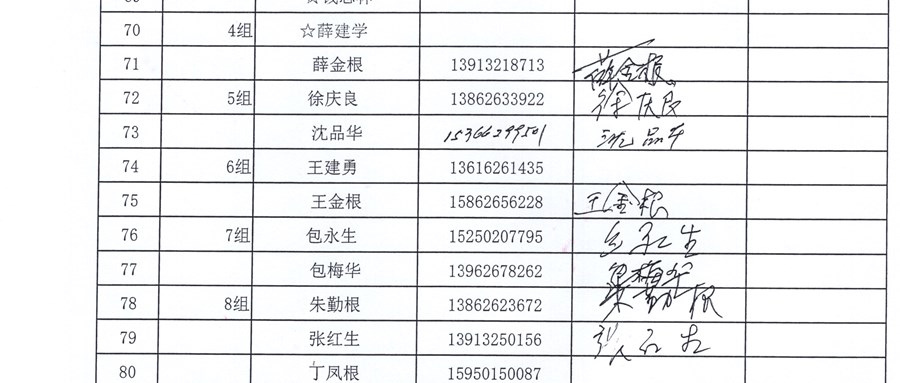 70 4组 ☆薛建学
71 薛金根 13913218713 薛金根
72 5组 徐庆良 13862633922 徐庆良
73 沈品华 15366299501 沈品华
74 6组 王建勇 13616261435
75 王金根 15862656228 王金根
76 7组 包永生 15250207795
77 包梅华 13962678262
78 8组 朱勤根 13862623672
79 张红生 13913250156
80 丁凤根 15950150087